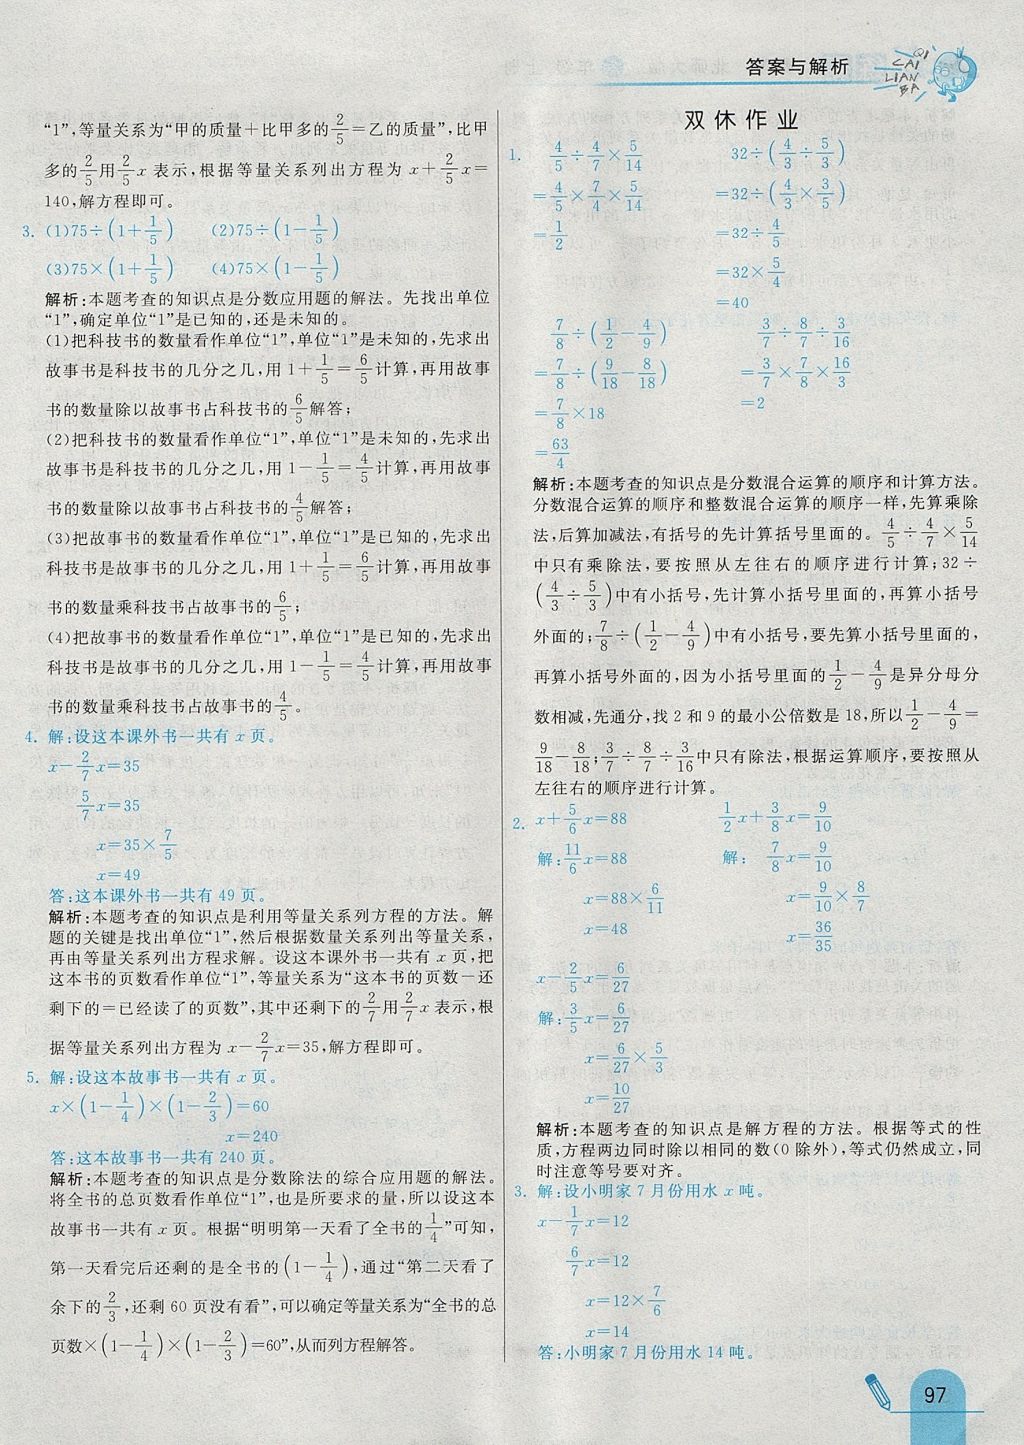 答案与解析
QI CAI LIAN BA
“1”,等量关系为“甲的质量＋比甲多的2/5＝乙的质量”,比甲
多的2/5用2/5x表示,根据等量关系列出方程为 x＋2/5x＝
140,解方程即可。
3. (1)75÷(1＋1/5) (2)75÷(1－1/5)
(3)75×(1＋1/5) (4)75×(1－1/5)
解析:本题考查的知识点是分数应用题的解法。先找出单位
“1”,确定单位“1”是已知的,还是未知的。
(1)把科技书的数量看作单位“1”,单位“1”是未知的,先求出
故事书是科技书的几分之几,用 1＋1/5＝6/5计算,再用故事
书的数量除以故事书占科技书的6/5解答;
(2)把科技书的数量看作单位“1”,单位“1”是未知的,先求出
故事书是科技书的几分之几,用 1－1/5＝4/5计算,再用故事
书的数量除以故事书占科技书的4/5解答;
(3)把故事书的数量看作单位“1”,单位“1”是已知的,先求出
科技书是故事书的几分之几,用 1＋1/5＝6/5计算,再用故事
书的数量乘科技书占故事书的6/5;
(4)把故事书的数量看作单位“1”,单位“1”是已知的,先求出
科技书是故事书的几分之几,用 1－1/5＝4/5计算,再用故事
书的数量乘科技书占故事书的4/5。
4. 解:设这本课外书一共有 x 页。
x－2/7x＝35
5/7x＝35
x＝35×7/5
x＝49
答:这本课外书一共有 49 页。
解析:本题考查的知识点是利用等量关系列方程的方法。解
题的关键是找出单位“1”,然后根据数量关系列出等量关系,
再由等量关系列出方程求解。设这本课外书一共有 x 页,把
这本书的页数看作单位“1”,等量关系为“这本书的页数－还
剩下的＝已经读了的页数”,其中还剩下的2/7用2/7x表示,根
据等量关系列出方程为 x－2/7x＝35,解方程即可。
5. 解:设这本故事书一共有 x 页。
x×(1－1/4)×(1－2/3)＝60
x＝240
答:这本故事书一共有 240 页。
解析:本题考查的知识点是分数除法的综合应用题的解法。
将全书的总页数看作单位“1”,也是所要求的量,所以设这本
故事书一共有 x 页。根据“明明第一天看了全书的1/4”可知,
第一天看完后还剩的是全书的(1－1/4),通过“第二天看了
余下的2/3,还剩 60 页没有看”,可以确定等量关系为“全书的总
页数×(1－1/4)×(1－2/3)＝60”,从而列方程解答。
双休作业
1. 4/5÷4/7×5/14 32÷(4/3÷5/3)
＝4/5×7/4×5/14 ＝32÷(4/3×3/5)
＝1/2 ＝32÷4/5
＝32×5/4
＝40
7/8÷(1/2－4/9) 3/7÷8/7÷3/16
＝7/8÷(9/18－8/18) ＝3/7×7/8×16/3
＝7/8×18 ＝2
＝63/4
解析:本题考查的知识点是分数混合运算的顺序和计算方法。
分数混合运算的顺序和整数混合运算的顺序一样,先算乘除
法,后算加减法,有括号的先计算括号里面的。4/5÷4/7×5/14
中只有乘除法,要按照从左往右的顺序进行计算;32÷
(4/3÷5/3)中有小括号,先计算小括号里面的,再算小括号
外面的;7/8÷(1/2－4/9)中有小括号,要先算小括号里面的,
再算小括号外面的,因为小括号里面的1/2－4/9是异分母分
数相减,先通分,找 2 和 9 的最小公倍数是 18,所以1/2－4/9＝
9/18－8/18;3/7÷8/7÷3/16中只有除法,根据运算顺序,要按照从
左往右的顺序进行计算。
2. x＋5/6x＝88 1/2x＋3/8x＝9/10
解:11/6x＝88 解: 7/8x＝9/10
x＝88×6/11 x＝9/10×8/7
x＝48 x＝36/35
x－2/5x＝6/27
解:3/5x＝6/27
x＝6/27×5/3
x＝10/27
解析:本题考查的知识点是解方程的方法。根据等式的性
质,方程两边同时除以相同的数(0 除外),等式仍然成立,同
时注意等号要对齐。
3. 解:设小明家 7 月份用水 x 吨。
x－1/7x＝12
6/7x＝12
x＝12×7/6
x＝14
答:小明家 7 月份用水 14 吨。
97